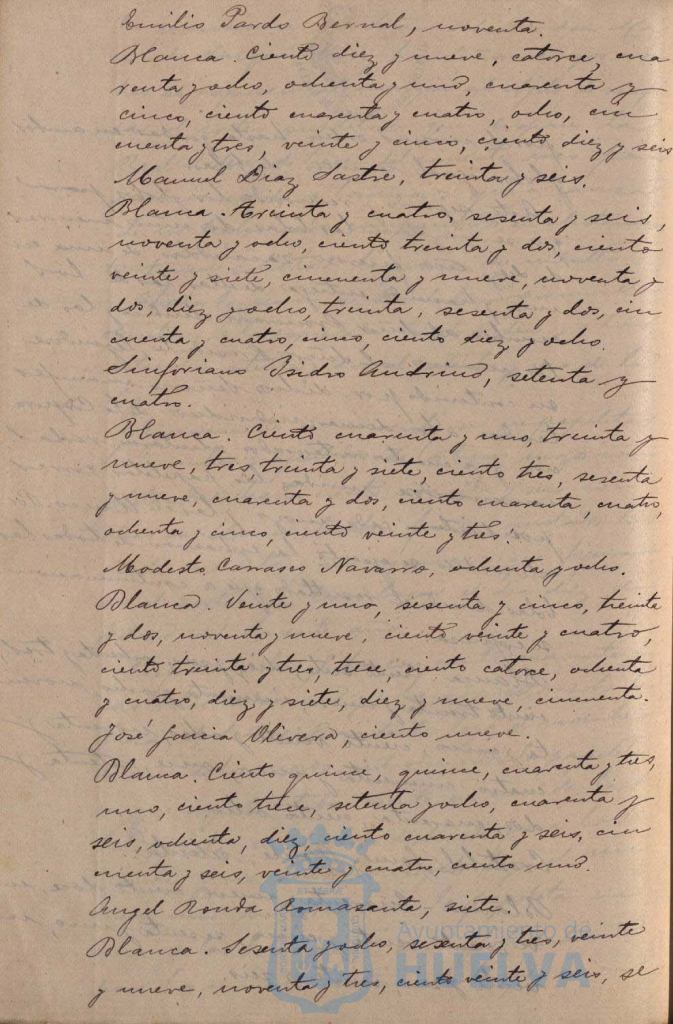 Emilio Pardo Bernal, noventa.
Blanca. Ciento diez y nueve, catorce, cua
renta y ocho, ochenta y uno, cuarenta y
cinco, ciento cuarenta y cuatro, ocho, cin
cuenta y tres, veinte y cinco, ciento diez y seis
Manuel Diaz Sastre, treinta y seis.
Blanca. Treinta y cuatro, sesenta y seis,
noventa y ocho, ciento treinta y dos, ciento
veinte y siete, cincuenta y nueve, noventa y
dos, diez y ocho, treinta, sesenta y dos, cin
cuenta y cuatro, cinco, ciento diez y ocho.
Sinforiano Isidro Andrino, setenta y
cuatro.
Blanca. Ciento cuarenta y uno, treinta y
nueve, tres, treinta y siete, ciento tres, sesenta
y nueve, cuarenta y dos, ciento cuarenta, cuatro,
ochenta y cinco, ciento veinte y tres.
Modesto Carrasco Navarro, ochenta y ocho.
Blanca. Veinte y uno, sesenta y cinco, treinta
y dos, noventa y nueve, ciento veinte y cuatro,
ciento treinta y tres, trece, ciento catorce, ochenta
y cuatro, diez y siete, diez y nueve, cincuenta.
José Garcia Olivera, ciento nueve.
Blanca. Ciento quince, quince, cuarenta y tres,
uno, ciento trece, setenta y ocho, cuarenta y
seis, ochenta, diez, ciento cuarenta y seis, cin
cuenta y seis, veinte y cuatro, ciento uno.
Angel Ronda Romasanta, siete.
Blanca. Sesenta y ocho, sesenta y tres, veinte
y nueve, noventa y tres, ciento veinte y seis, se
Ayuntamiento de
HUELVA